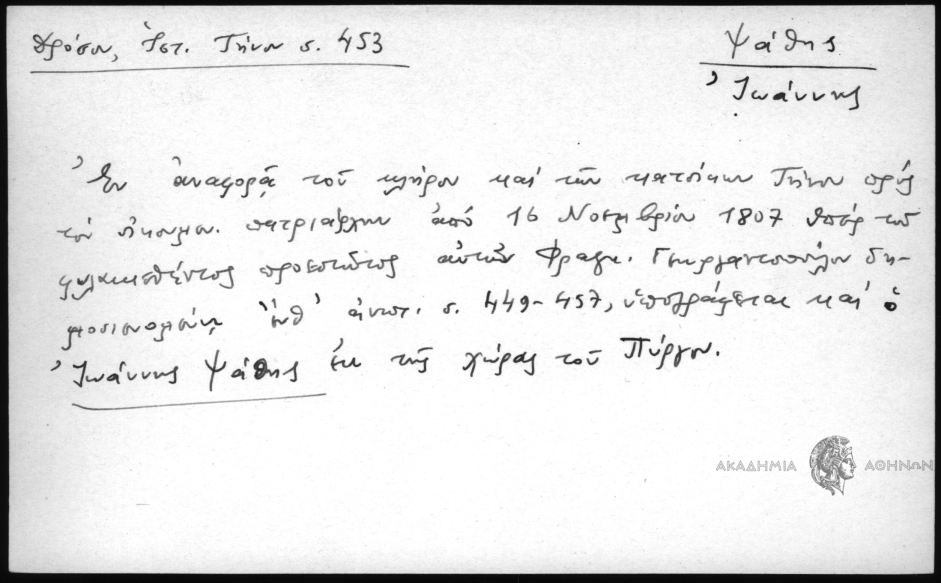 Δρόσου, Ἱστ. Τήνου σ. 453
Ψάθης
Ἰωάννης
Ἐν ἀναφορᾷ τοῦ κλήρου καί τῶν κατοίκων Τήνου πρός
τόν οἰκουμεν. πατριάρχην ἀπό 16 Νοεμβρίου 1807 ὑπέρ τοῦ
φυλακισθέντος προεστῶτος αὐτῶν Φραγκ. Γεωργαντοπούλου δη-
μοσιευομένῃ ἔνθ' ἀνωτ. σ. 449-457, ὑπογράφεται καί ὁ
Ἰωάννης Ψάθης ἐκ τῆς χώρας τοῦ Πύργου.
ΑΚΑΔΗΜΙΑ ΑΘΗΝΩΝ